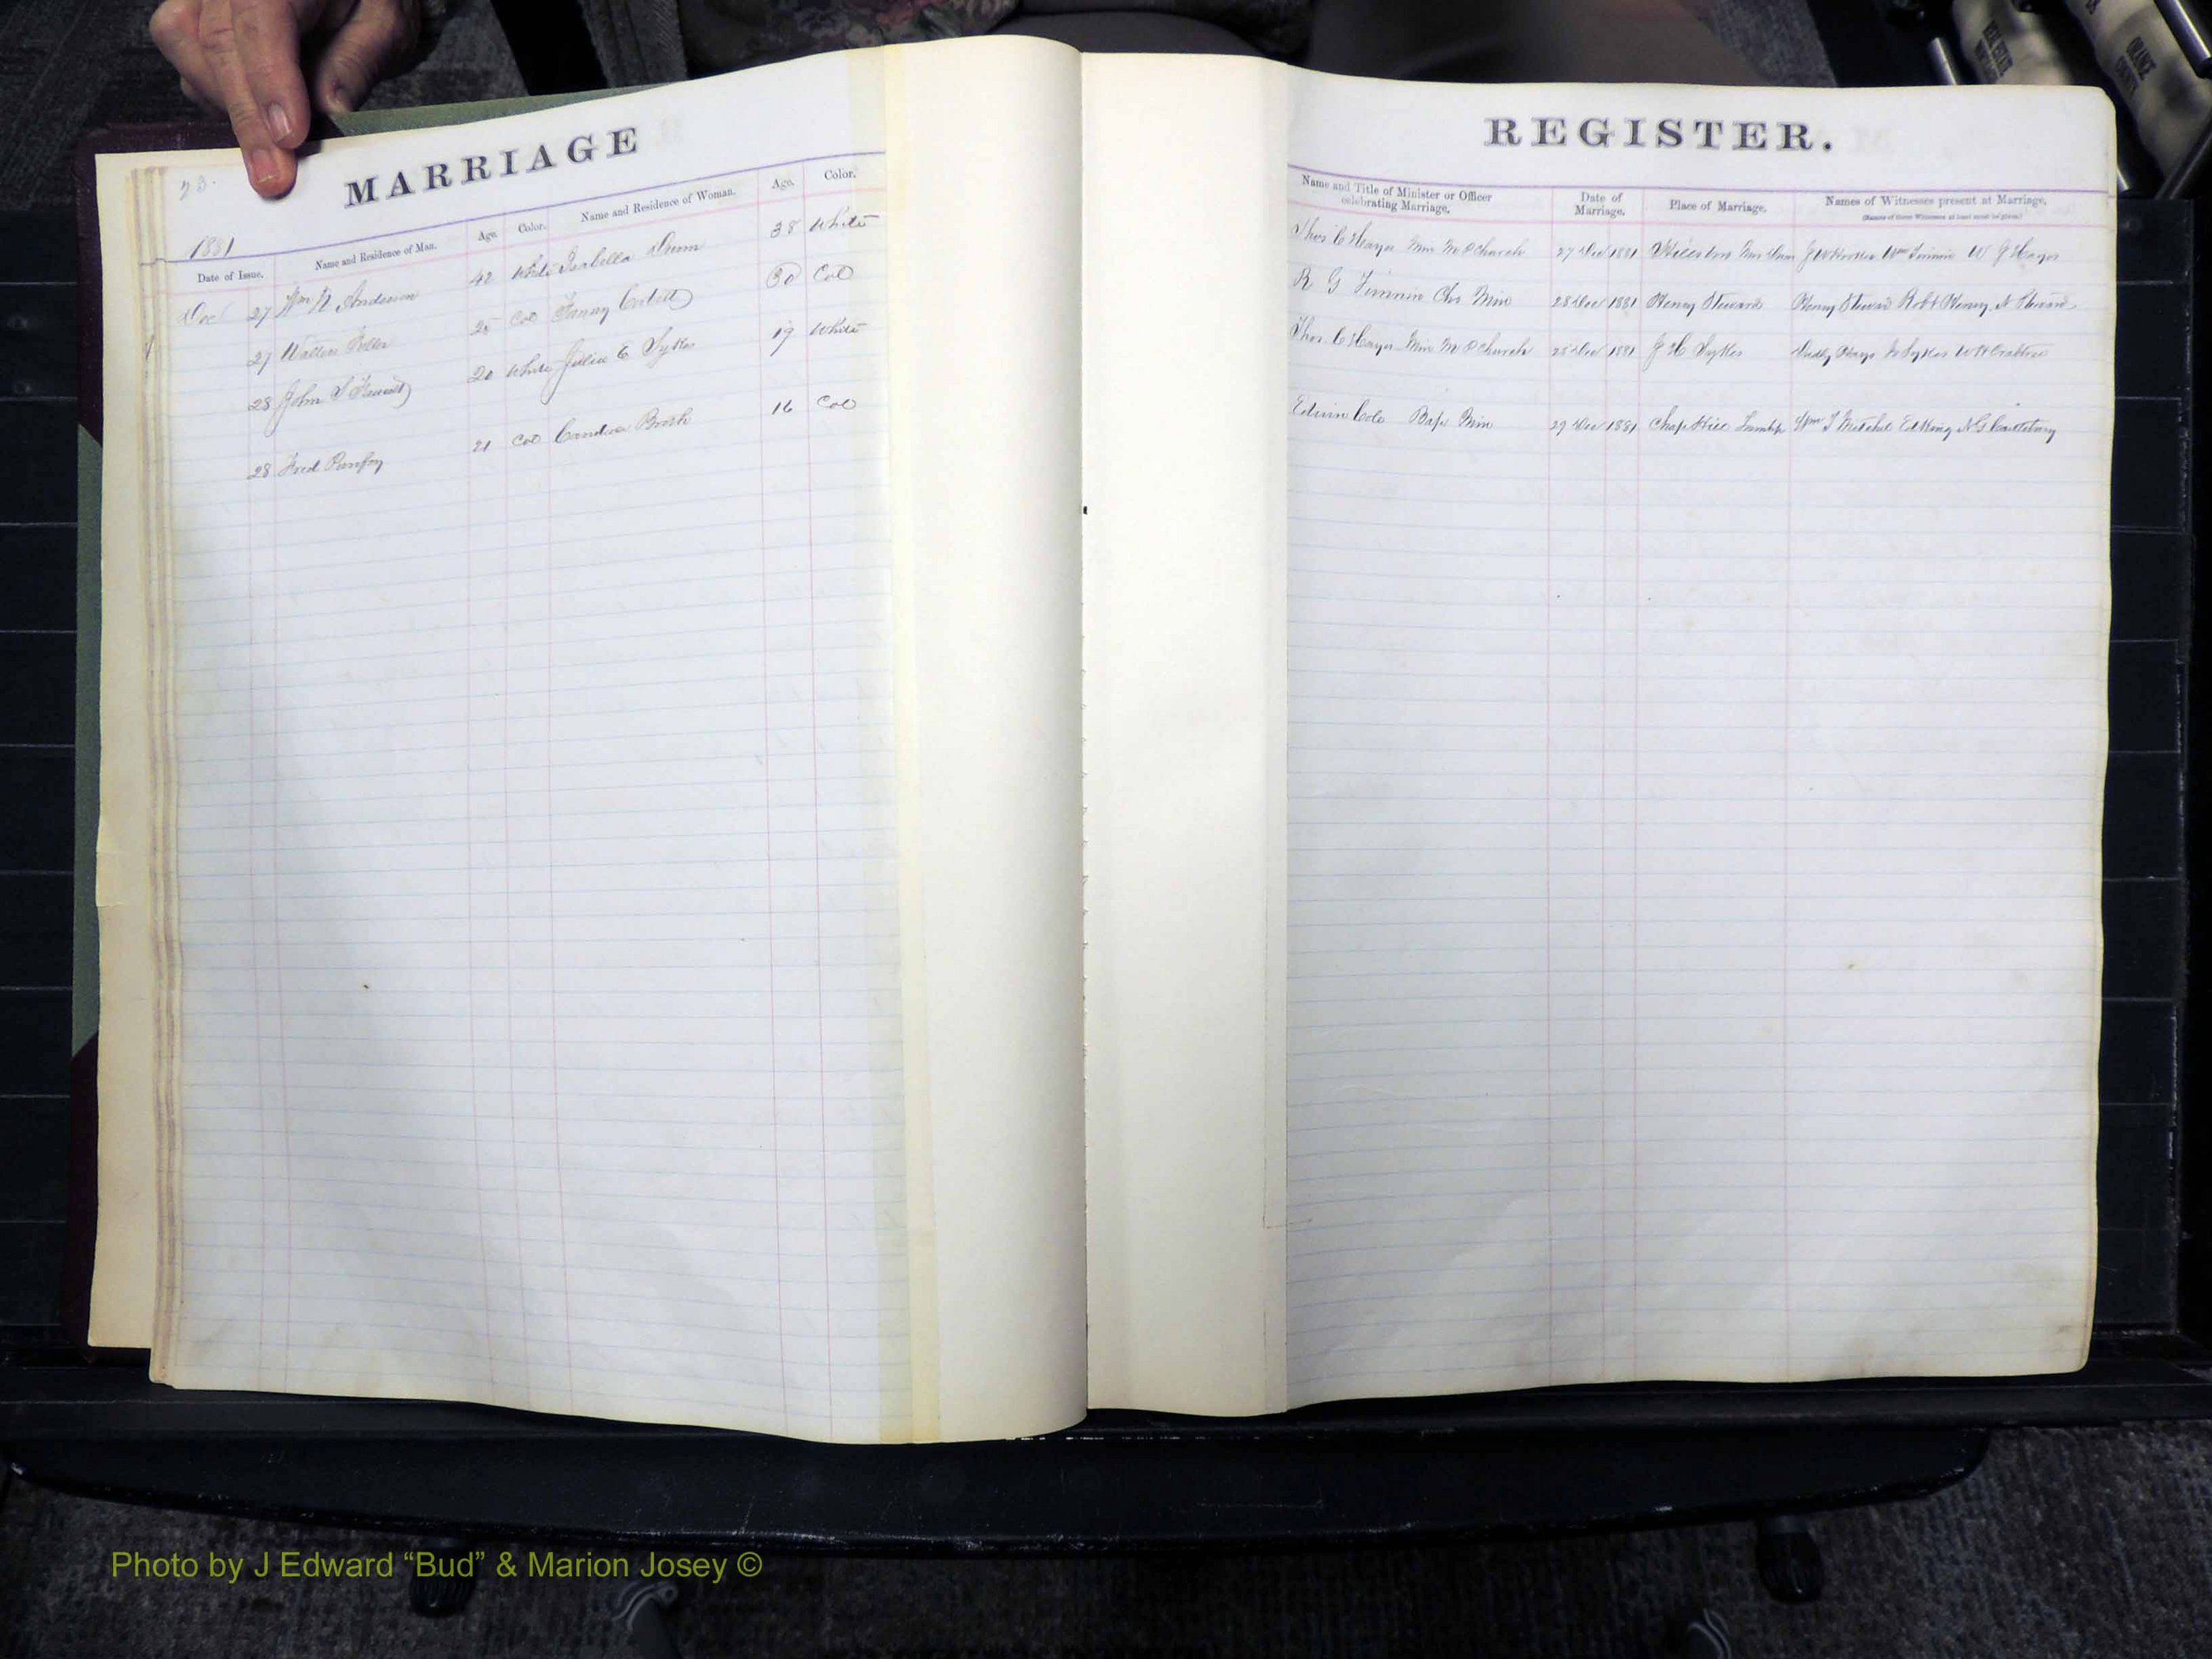 MARRIAGE
1881
Date of Issue. Name and Residence of Man. Age. Color. Name and Residence of Woman. Age. Color.
Dec 27 Wm N Anderson 42 White Isabella Dunn 38 White
27 Walter 25 Col Fanny Corbett 30 Col
28 John S 20 White Julia E Sykes 19 White
28 Fred Purefoy 21 Col Candice 16 Col
REGISTER.
Name and Title of Minister or Officer celebrating Marriage. Date of Marriage. Place of Marriage. Names of Witnesses present at Marriage.
(Names of three Witnesses at least must be given.)
Thos C Hayes Min M P Church 27 Dec 1881 Mrs Dunn Wm W J Hayes
R G Chr Min 28 Dec 1881 Henry Steward Henry Steward Robt Henry, N Steward
Thos C Hayes Min M P Church 28 Dec 1881 J H Sykes Sykes W H Crabtree
Edwin Cole Bap Min 29 Dec 1881 Chap Hill Wm Mitchel Ed King
ORANGE
COUNTY
REAL ESTATE
Photo by J Edward “Bud” & Marion Josey ©